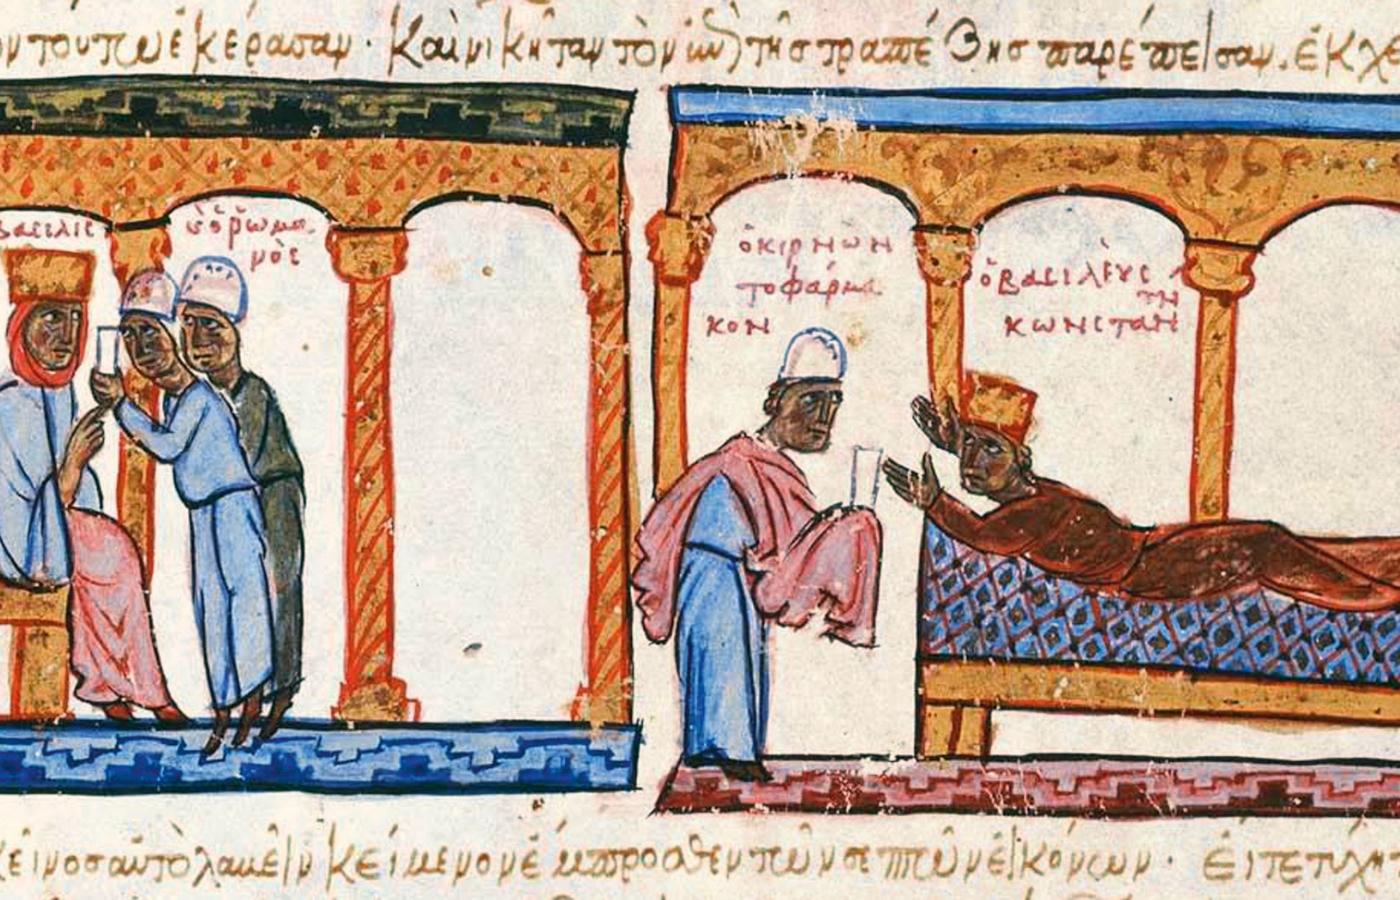 τοῦ ἐκέρασαν· καὶ νικητὰν τὸν τῆς τραπέζης παρέπεισαν. ἐκ
βασιλεὺς
ὁ ῥωμα
νὸς
ὁ κιρνῶν
τὸ φάρμα
κον
ὁ βασιλεὺς
κωνσταν
τῖ
κεῖνος αὐτὸ λαβεῖν κείμενον ἔμπροσθεν τῶν σεπτῶν εἰκόνων·